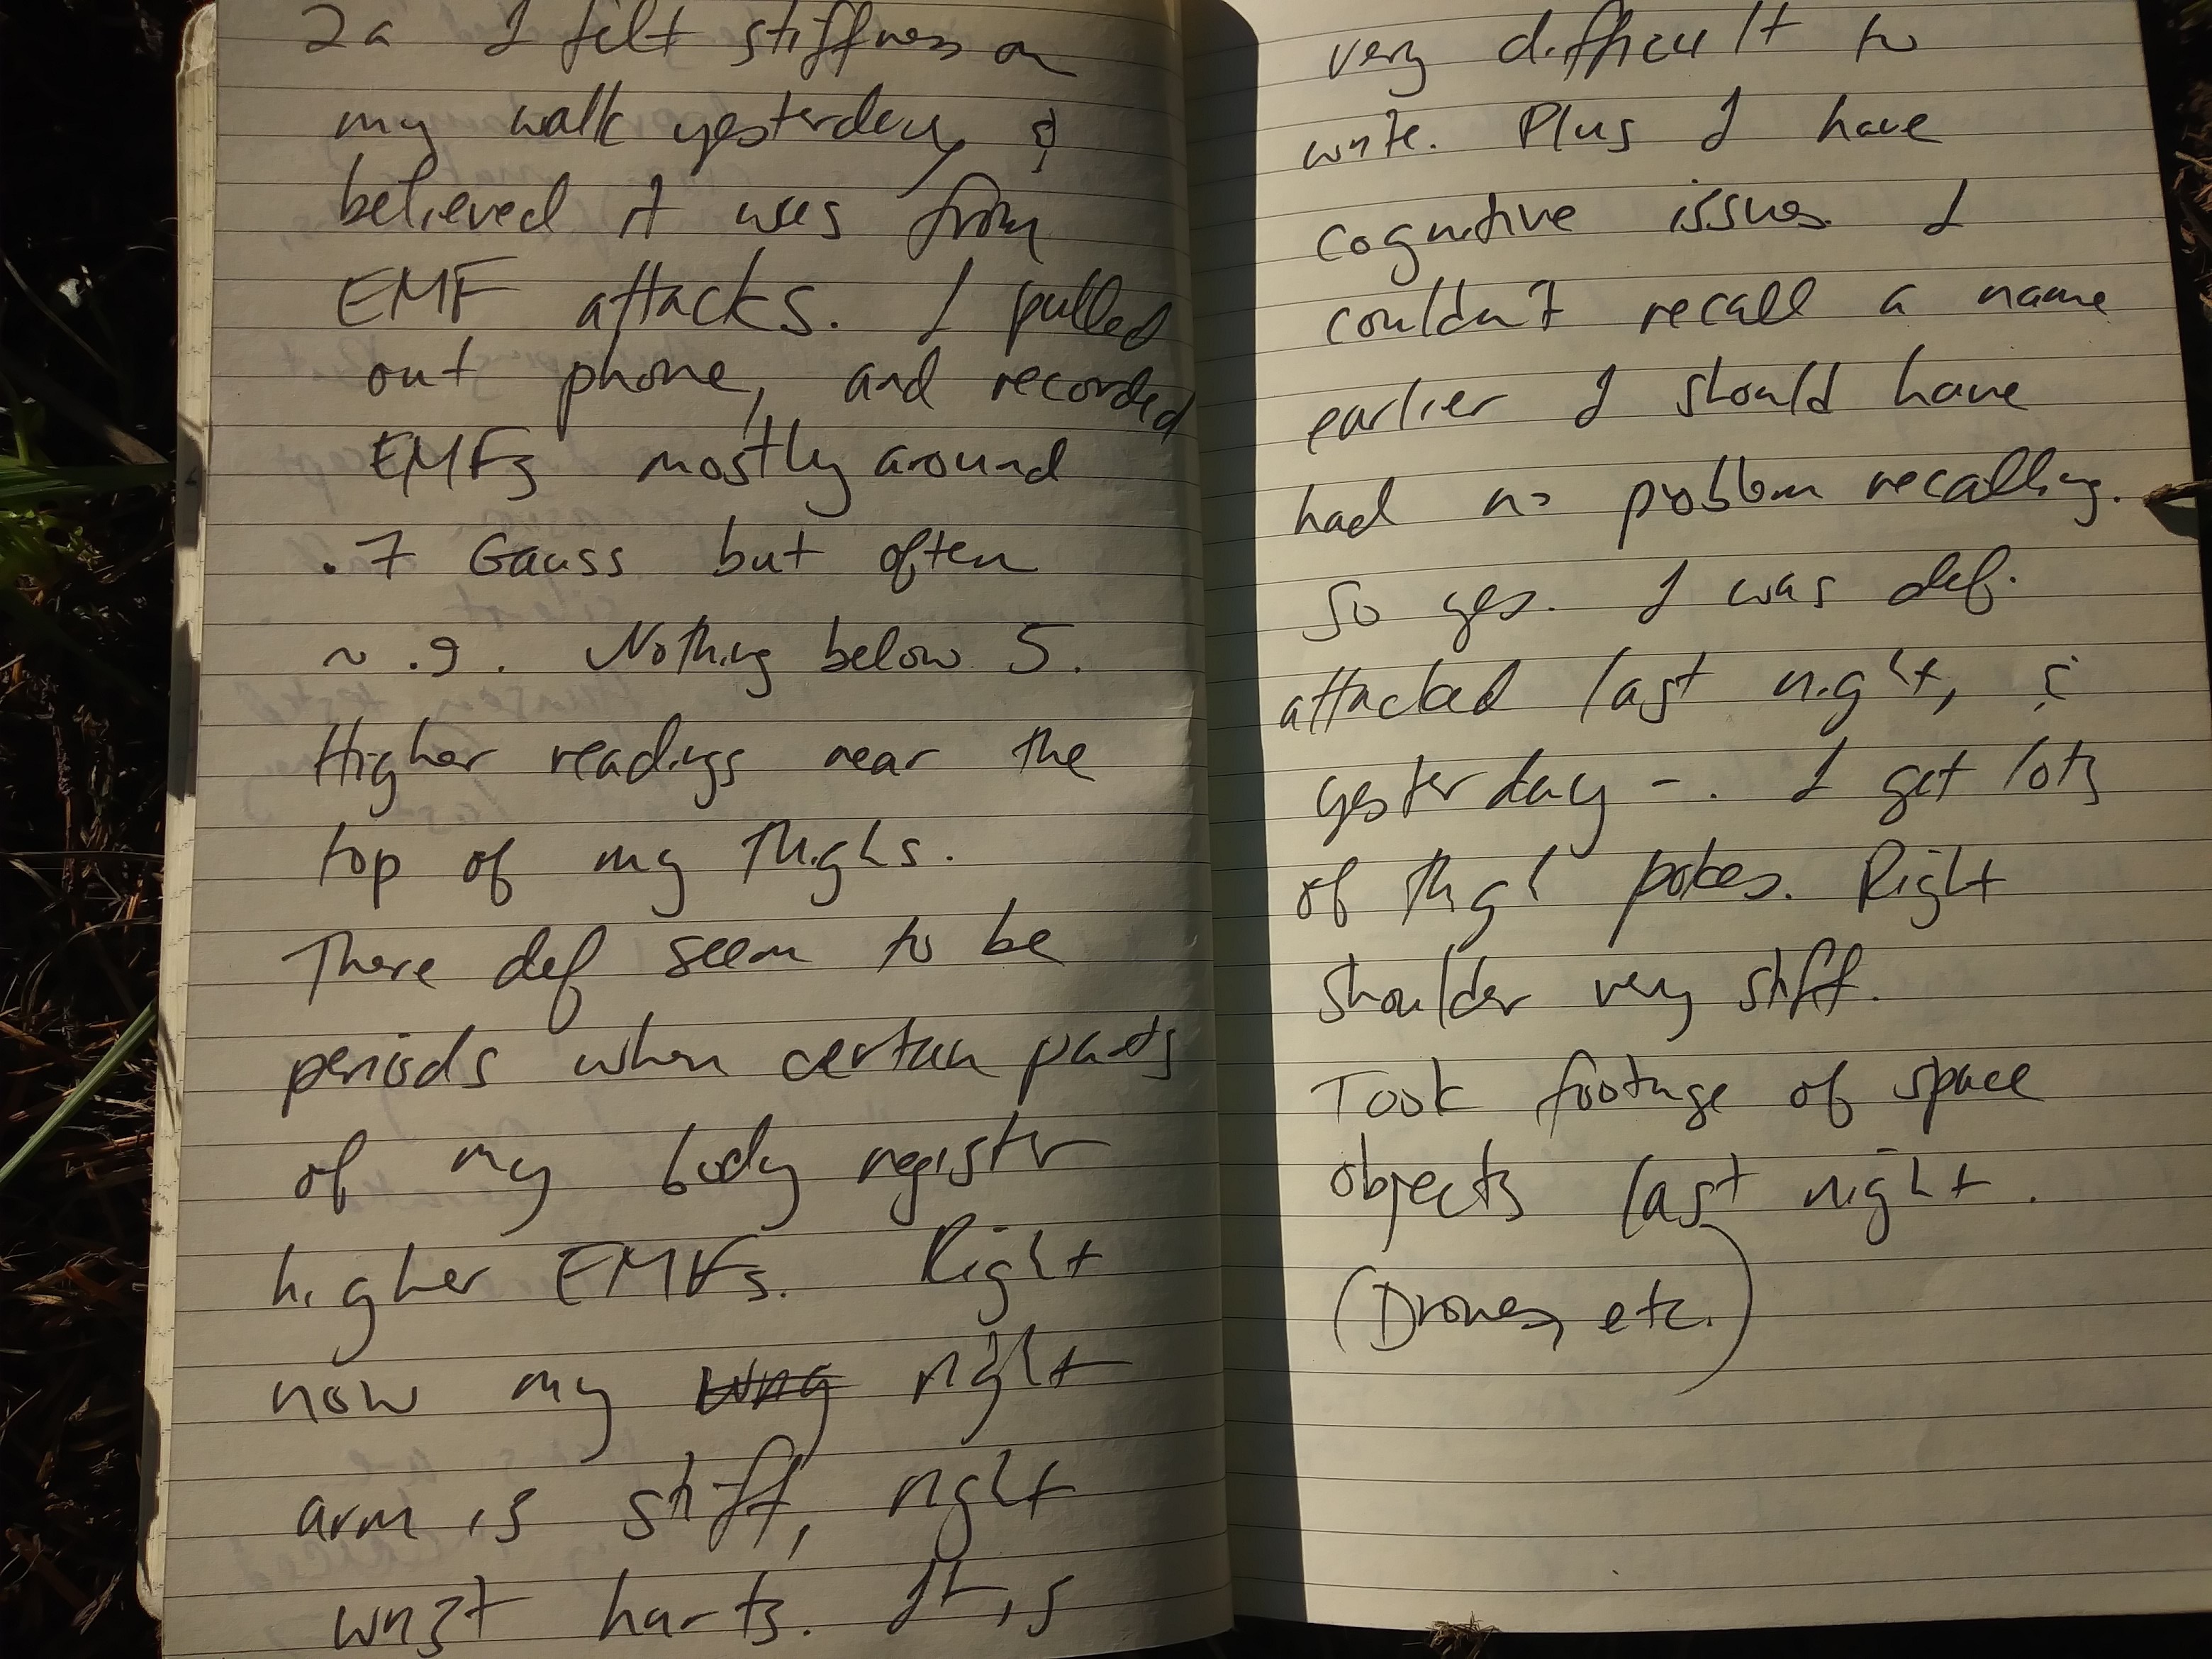 2a I felt stiffness on
my walk yesterday, &
believed it was from
EMF attacks. I pulled
out phone, and recorded
EMFs mostly around
.7 Gauss but often
~ .9. Nothing below 5.
Higher readings near the
top of my thighs.
There def seem to be
periods when certain parts
of my body register
higher EMFs. Right
now my right
arm is stiff, right
wrist hurts. It is
very difficult to
write. Plus I have
cognitive issues. I
couldn't recall a name
earlier I should have
had no problem recalling.
So yes. I was def.
attacked last night, &
yesterday -. I get lots
of thigh pokes. Right
shoulder very stiff.
Took footage of space
objects last night.
(Drones, etc.)